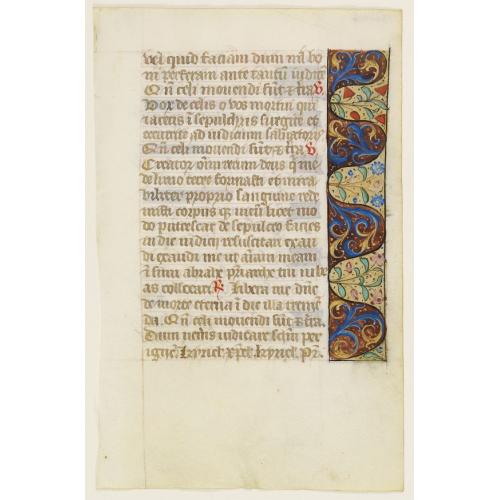 vel quid faciam dum nil bo
ni perferam ante tantū iudicē
Qn̄ celi mouendi sūt ⁊ t̄ra v̄
Vox de celis o vos mortui qui
iacetis ī sepulchris surgite et
occurrite ad iudicium saluatoris
Qn̄ celi mouendi sūt ⁊ t̄ra v̄
Creator om̄iū rerum deus q̄ me
de limo terre formasti et mira
biliter proprio sanguine red
emisti corpus q̄ meū licet mo
do putrescat de sepulcro facies
in die iudicii resuscitari exau
di exaudi me ut aīam meam
ī sinu abrahe pr̄iarche tui iube
as collocare R̄ Libera me dn̄e
de morte eterna ī die illa tremē
da Qn̄ celi mouendi sūt ⁊ t̄ra.
Dum veneris iudicare sc̄lm per
ignē. kyriel. xp̄el. kyriel. Pr̄.